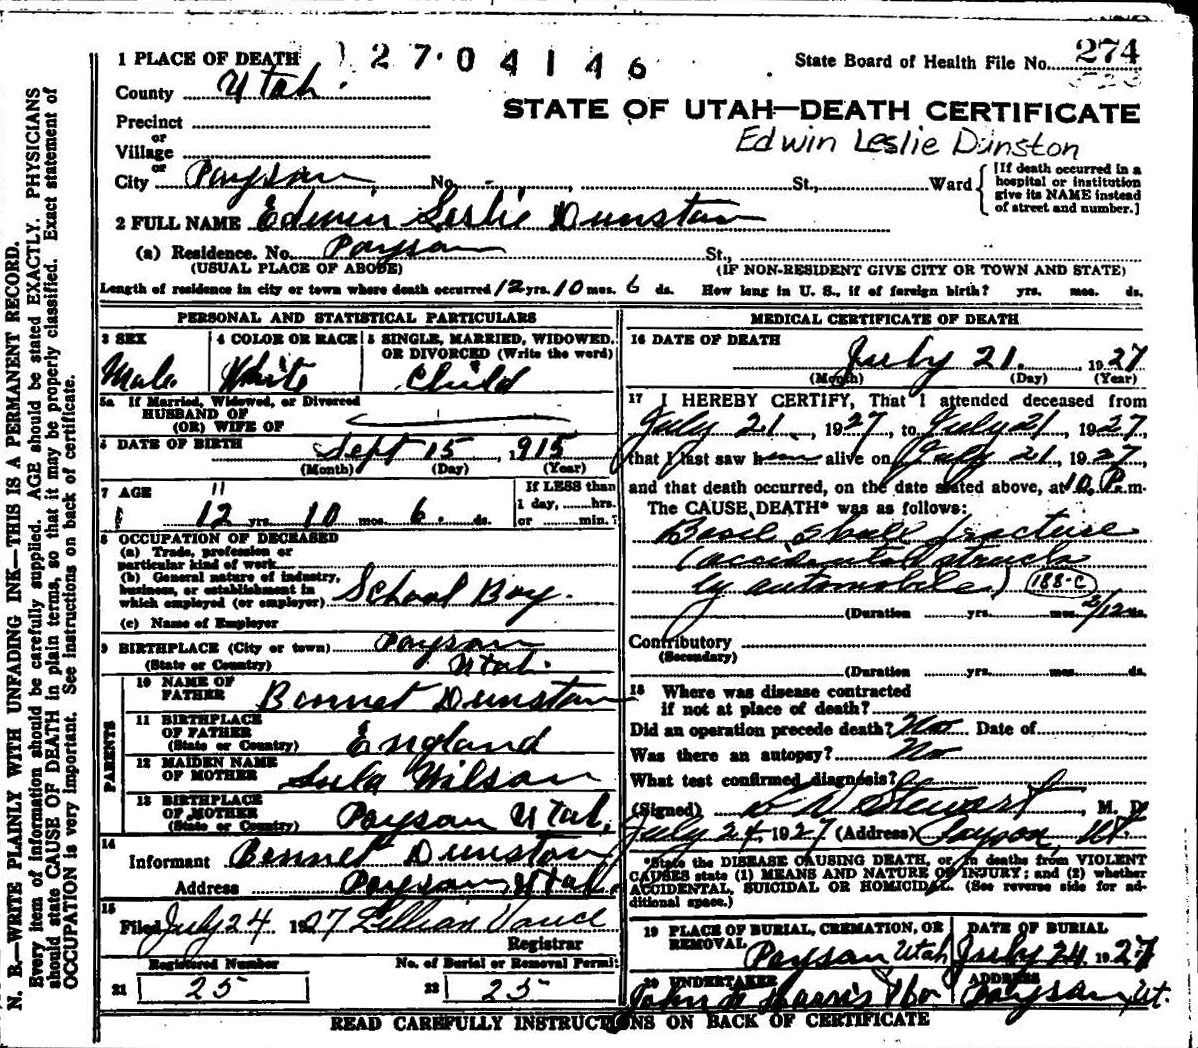 1 PLACE OF DEATH 27·04146
State Board of Health File No. 274
County Utah.
STATE OF UTAH—DEATH CERTIFICATE
Precinct
or
Village
Edwin Leslie Dunston
or
City Payson No. - , St., Ward
[If death occurred in a
hospital or institution
give its NAME instead
of street and number.]
2 FULL NAME Edwin Leslie Dunston
(a) Residence. No. Payson St.,
(USUAL PLACE OF ABODE) (IF NON-RESIDENT GIVE CITY OR TOWN AND STATE)
Length of residence in city or town where death occurred 12 yrs. 10 mos. 6 ds. How long in U. S., if of foreign birth? yrs. mos. ds.
PERSONAL AND STATISTICAL PARTICULARS
3 SEX
Male
4 COLOR OR RACE
White
5 SINGLE, MARRIED, WIDOWED,
OR DIVORCED (Write the word)
Child
5a If Married, Widowed, or Divorced
HUSBAND OF
(OR) WIFE OF
6 DATE OF BIRTH Sept 15, 1915
(Month) (Day) (Year)
7 AGE
12 yrs. 10 mos. 6. ds.
If LESS than
1 day, hrs.
or min.?
8 OCCUPATION OF DECEASED
(a) Trade, profession or
particular kind of work
(b) General nature of industry,
business, or establishment in
which employed (or employer) School Boy.
(c) Name of Employer
9 BIRTHPLACE (City or town) Payson
(State or Country) Utah.
PARENTS
10 NAME OF
FATHER Bennet Dunston
11 BIRTHPLACE
OF FATHER
(State or Country) England
12 MAIDEN NAME
OF MOTHER Lula Wilson
13 BIRTHPLACE
OF MOTHER
(State or Country) Payson Utah.
14
Informant Bennet Dunston
Address Payson, Utah.
15
Filed July 24 1927 Lillian Vance
Registrar
Registered Number No. of Burial or Removal Permit
21 25 22 25
MEDICAL CERTIFICATE OF DEATH
16 DATE OF DEATH
July 21. , 1927
(Month) (Day) (Year)
17 I HEREBY CERTIFY, That I attended deceased from
July 21, 1927, to July 21, 1927,
that I last saw him alive on July 21, 1927,
and that death occurred, on the date stated above, at 10 P. m.
The CAUSE DEATH* was as follows:
Basil skull fracture
(accidental struck
by automobile) 188-c
(Duration yrs. mos. 2/12 ds.
Contributory
(Secondary)
(Duration yrs. mos. ds.
18 Where was disease contracted
if not at place of death?
Did an operation precede death? No Date of
Was there an autopsy? No
What test confirmed diagnosis?
(Signed) Stewart, M. D.
July 24 1927 (Address) Payson, Ut.
*State the DISEASE CAUSING DEATH, or, in deaths from VIOLENT
CAUSES state (1) MEANS AND NATURE OF INJURY; and (2) whether
ACCIDENTAL, SUICIDAL OR HOMICIDAL. (See reverse side for ad-
ditional space.)
19 PLACE OF BURIAL, CREMATION, OR
REMOVAL Payson Utah
DATE OF BURIAL
July 24 1927
20 UNDERTAKER
John
ADDRESS
Payson, Ut.
READ CAREFULLY INSTRUCTIONS ON BACK OF CERTIFICATE
N. B.—WRITE PLAINLY WITH UNFADING INK—THIS IS A PERMANENT RECORD.
Every item of information should be carefully supplied. AGE should be stated EXACTLY. PHYSICIANS
should state CAUSE OF DEATH in plain terms, so that it may be properly classified. Exact statement of
OCCUPATION is very important. See instructions on back of certificate.